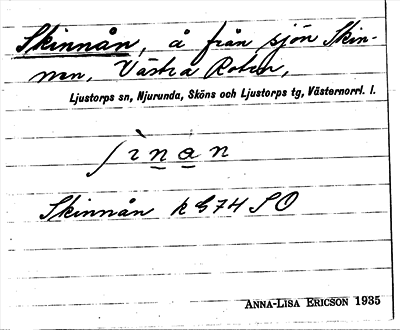 Skinnån, å från sjön Skin-
nen, Västra Roten,
Ljustorps sn, Njurunda, Sköns och Ljustorps tg, Västernorrl. l.
ʃìnan
Skinnån k G74 SO
ANNA-LISA ERICSON 1935